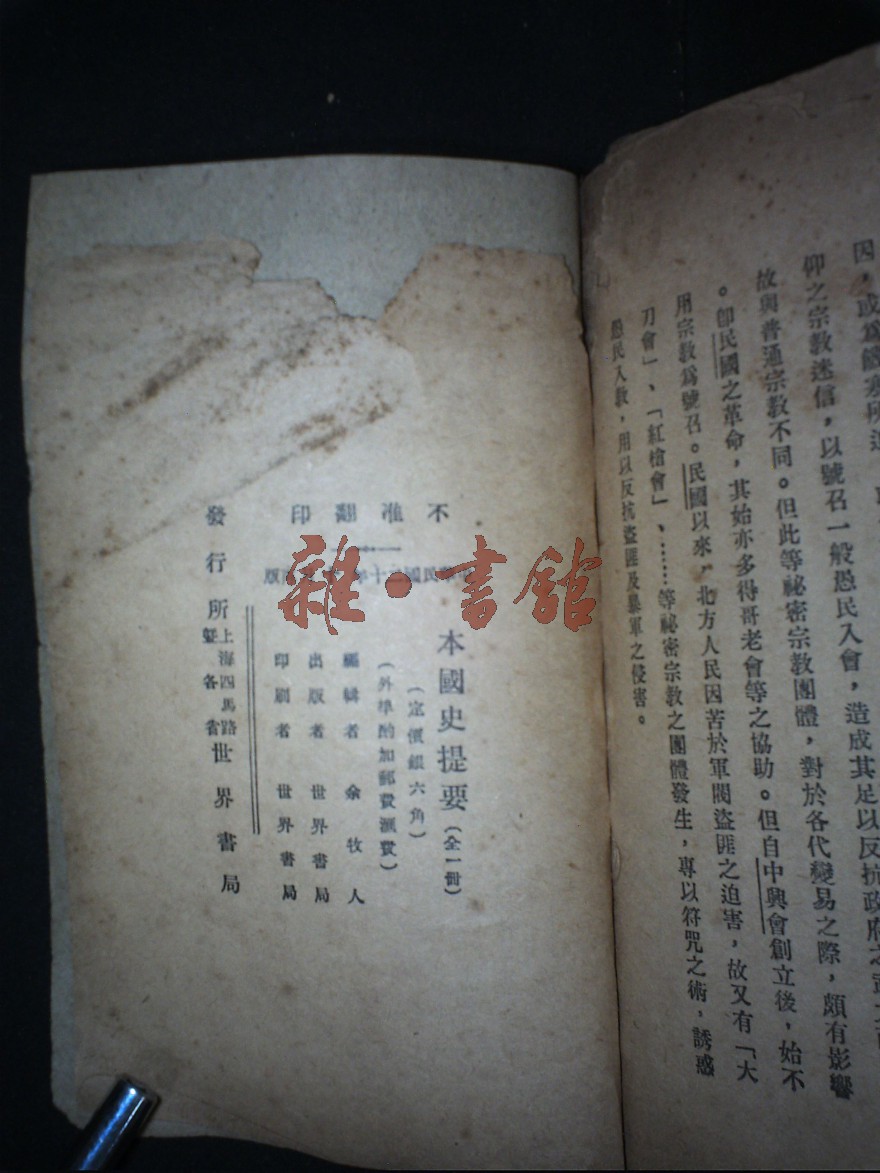 仰之宗教迷信，以號召一般愚民入會，造成其足以反抗政府之
故與普通宗教不同。但此等祕密宗教團體，對於各代變易之際，頗有影響
。卽民國之革命，其始亦多得哥老會等之協助。但自中興會創立後，始不
用宗教爲號召。民國以來，北方人民因苦於軍閥盜匪之迫害，故又有「大
刀會」、「紅槍會」、……等祕密宗教之團體發生，專以符咒之術，誘惑
愚民入教，用以反抗盜匪及暴軍之侵害。
不准翻印
雜·書館
本國史提要（全一冊）
（定價銀六角）
（外埠酌加郵費滙費）
編輯者 余牧人
出版者 世界書局
印刷者 世界書局
發行所 上海四馬路暨各省 世界書局